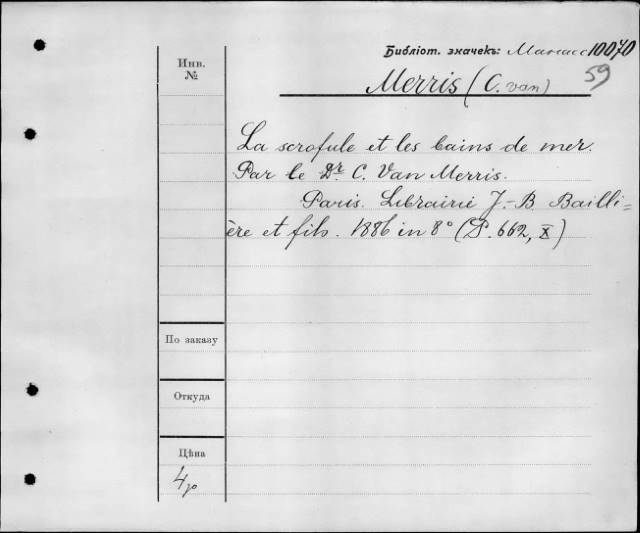 Библіот. значекъ: Манасс 10070
59
Инв.
№
Merris (C. van)
La scrofule et les bains de mer.
Par le Dr. C. Van Merris.
Paris. Librairie J.-B. Bailli=
ère et fils. 1886 in 8° (P. 662, X)
По заказу
Откуда
Цѣна